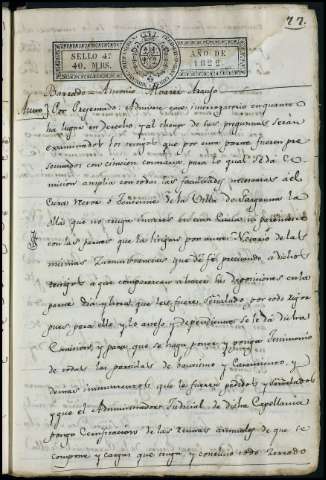 77.
SELLO 4º
40. MRS.
AÑO DE
1822
Barredo = Antonio Alvarez Araujo
Auto} Por Presentado: Admitese este interrogatorio en quanto
ha lugar en derecho y al thenor de sus preguntas seran
examinados los testigos que por esta parte fueren pre
sentados con citacion contraria para lo qual se da Co
mision amplia con todas las facultades necesarias a el
Cura Rector o Teniente de la Villa de
ella que no tenga interes en esta Causa ni parentesco
con las partes que la litigan por ante Notario de las
mismas circunstancias que de fe precisando a dichos
testigos a que comparezcan a hacer sus deposiciones en la
parte dia y hora que les fuere señalado por todo rigor
pues para ello y lo anejo y dependiente se le da dicha
Comision, y para que se haga poner y ponga testimonio
de todas las partidas de bautismo y Casamiento, y
demas instrumentos que le fueren pedidos y señalados
y que el Administrador Judicial de dicha Capellania
ponga Certificacion de las rentas anuales de que se
compone y cargas que tenga y concluso todo cerrado